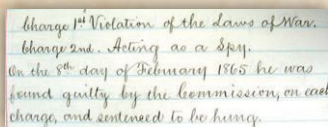 Charge 1st Violation of the Laws of War.
Charge 2nd. Acting as a Spy.
On the 8th day of February 1865 he was
found guilty by the Commission, on each
charge, and sentenced to be hung.